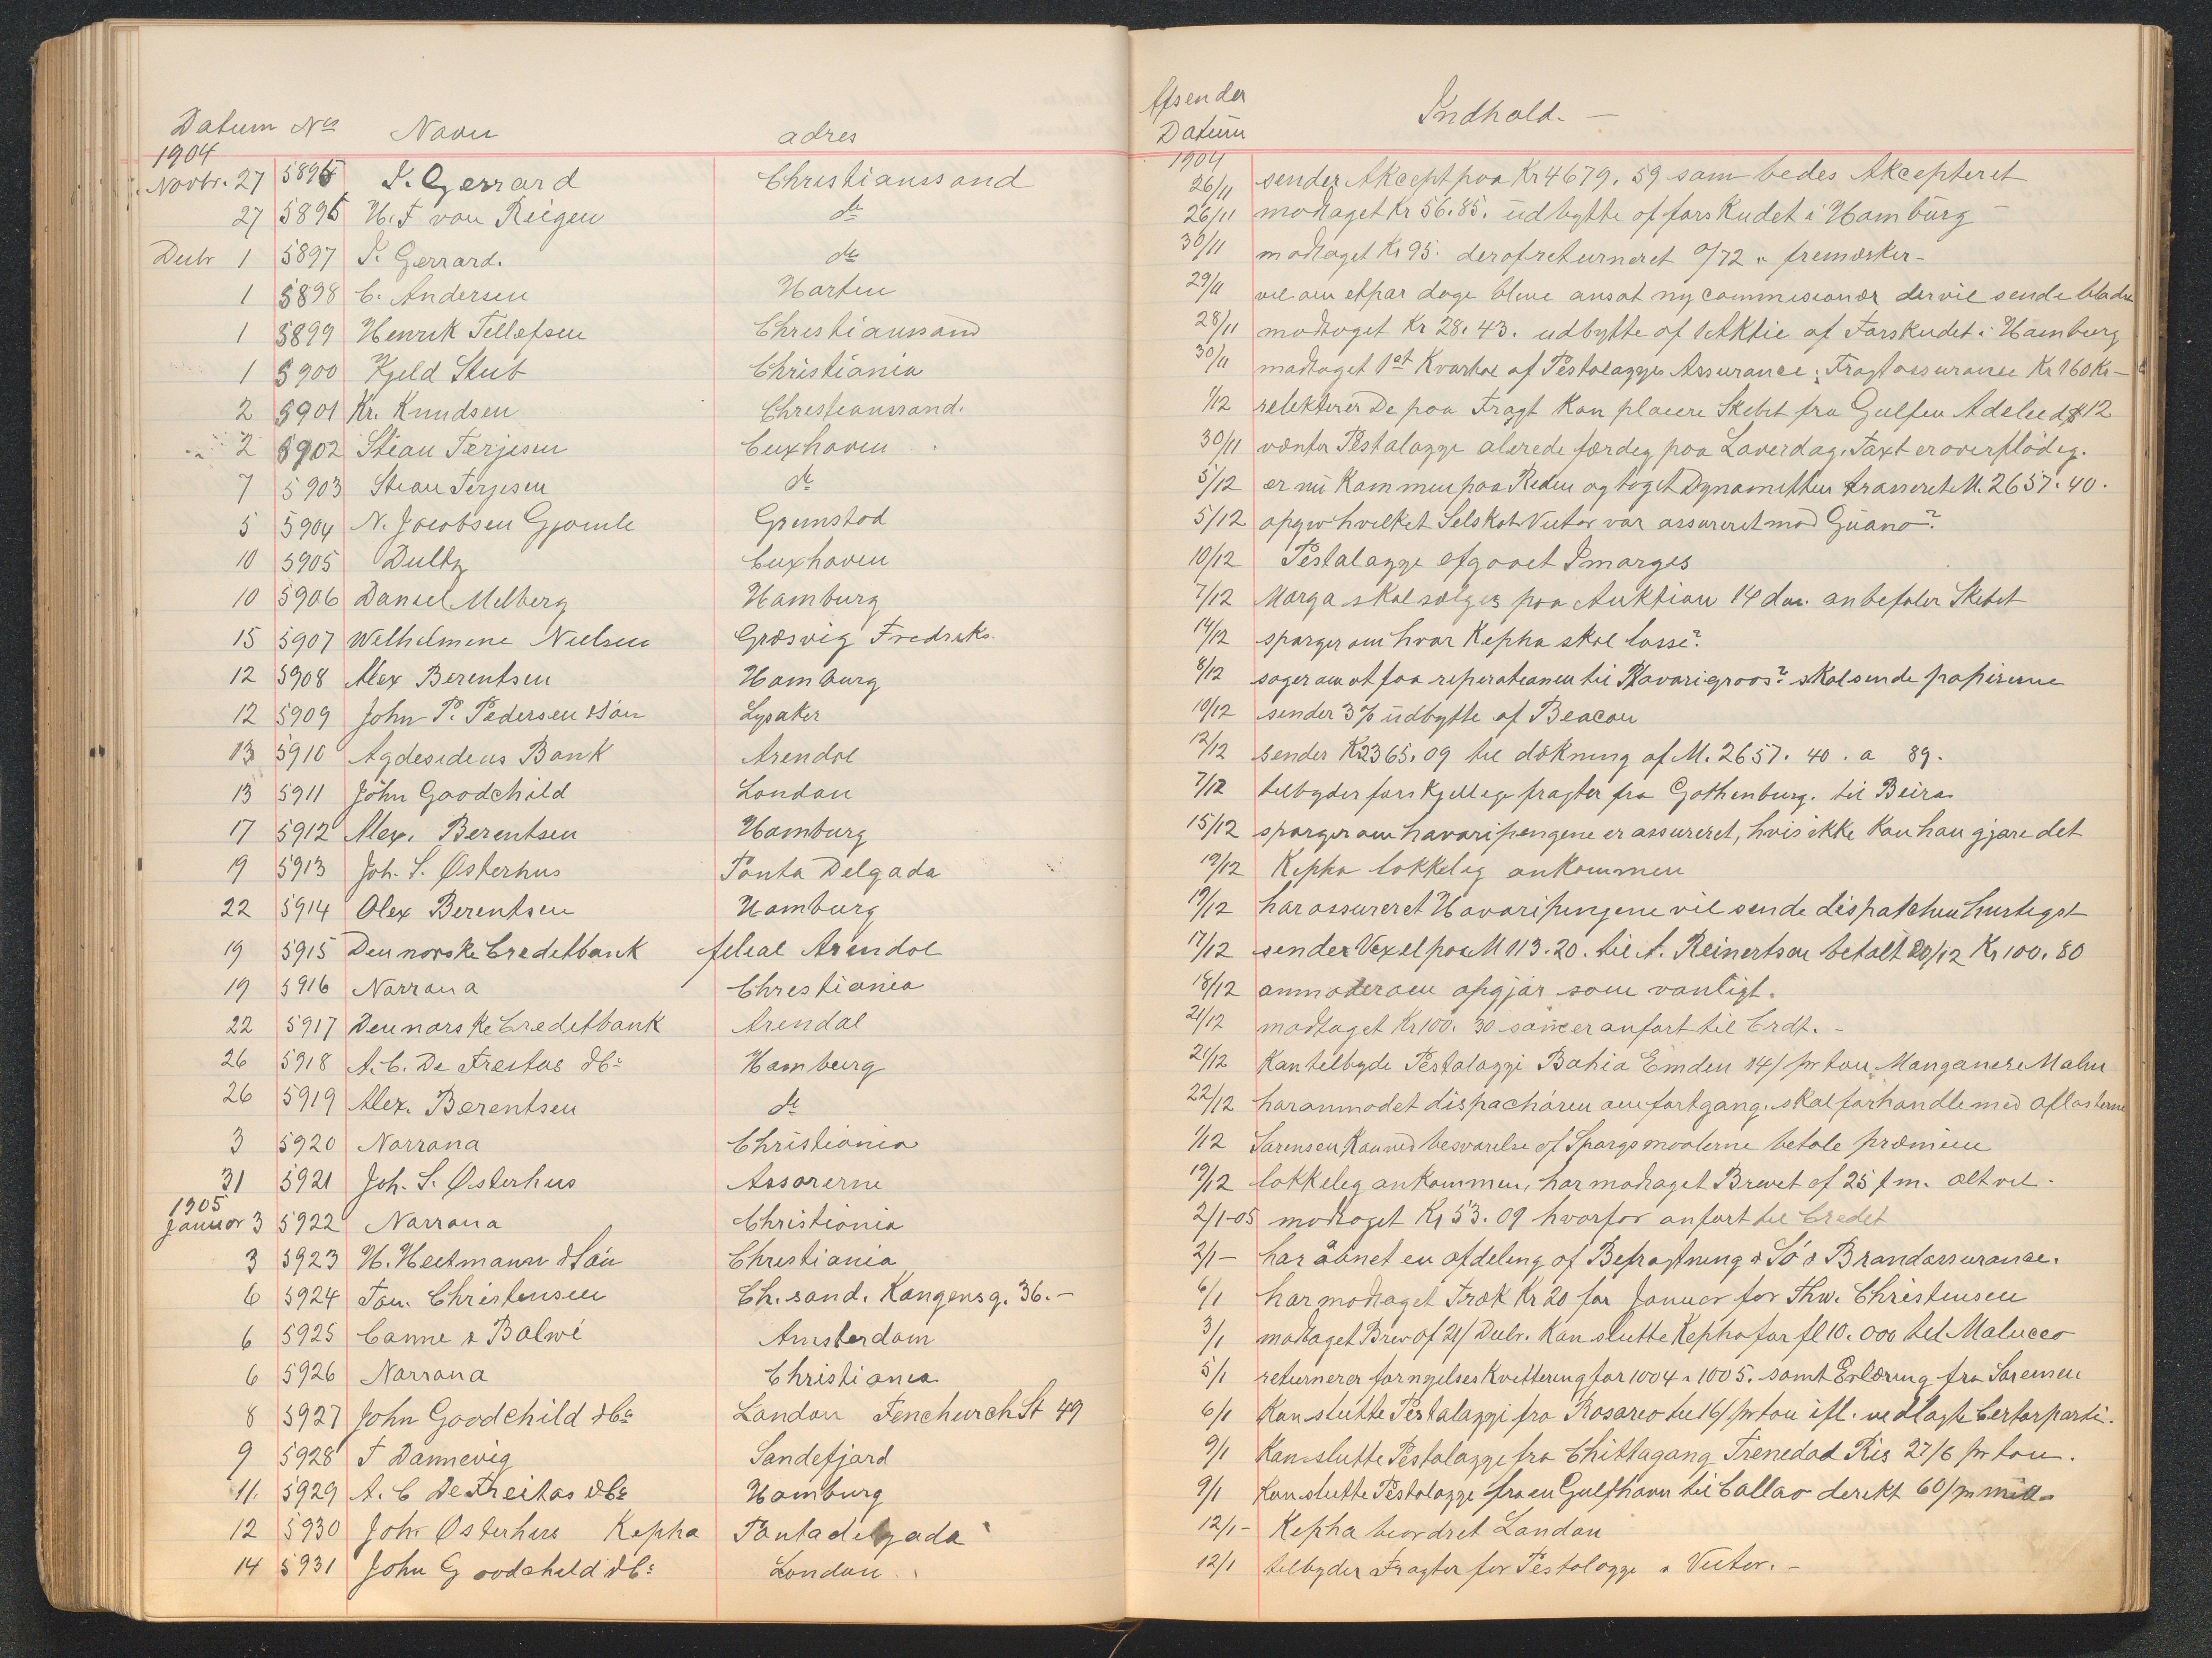 Datum No Navn adres
1904
Novbr. 27 5895 I. Gerrard Christianssand
27 5896 H. F von Reigen do
Decbr 1 5897 I. Gerrard. do
1 5898 C. Andersen Harten
1 5899 Henrik Tellefsen Christianssand
1 5900 Kjeld Stub Christiania
2 5901 Kr. Knudsen Christianssand.
2 5902 Stian Terjesen Cuxhaven
7 5903 Stian Terjesen do
5 5904 N. Jacobsen Gjømle Grimstad
10 5905 Dultz Cuxhaven
10 5906 Daniel Melberg Hamburg
15 5907 Wilhelmine Nielsen Græsvig Fredriks.
12 5908 Alex Berentsen Hamburg
12 5909 John P. Pedersen & Søn Lysaker
13 5910 Agdesidens Bank Arendal
13 5911 John Goodchild London
17 5912 Alex. Berentsen Hamburg
19 5913 Joh. S. Østerhus Ponta Delgada
22 5914 Alex Berentsen Hamburg
19 5915 Den norske Creditbank filial Arendal
19 5916 Norrøna Christiania
22 5917 Den norske Creditbank Arendal
26 5918 A. C. De Freitas & Co Hamburg
26 5919 Alex. Berentsen do
3 5920 Norrøna Christiania
31 5921 Joh. S. Østerhus Assorerne
1905
Januar 3 5922 Norrøna Christiania
3 5923 H. Heitmann & Søn Christiania
6 5924 Tom. Christensen Ch. sand. Kongensg. 36. -
6 5925 Canne & Balwé Amsterdam
6 5926 Norrøna Christiania
8 5927 John Goodchild & Co London Fenchurch St 49
9 5928 T Dannevig Sandefjord
11. 5929 A. C De Freitas & Co Hamburg
12 5930 Joh. Østerhus Kepha Pontadelgada
14 5931 John Goodchild & Co London
Afsender
Datum Indhold. -
1904
26/11 sender Akcept paa Kr 4679. 59 som bedes Akcepteret
26/11 modtaget Kr 56. 85. udbytte af forskudet i Hamburg -
30/11 modtaget Kr 95. deraf returneret 9/72 fremærker -
29/11 vil om et par dage blive ansat ny commisionær der vil sende bladu
28/11 modtaget Kr 28. 43. udbytte af 1 Aktie af Forskudet i Hamburg
30/11 modtaget 1st Kvartal af Pestalozzis Assurance; Fragtassurance Kr 160 Kr -
1/12 relekterer De paa Fragt kan placere Skibet fra Gulfen Adeleid $12
30/11 vænter Pestalozzi alerede færdig paa Løverdag. Taxt er overflödig.
5/12 er nu kommen paa Reden og taget Dynamitten trasseret M. 2657. 40.
5/12 opgiv hvilket Selskab Victor var assureret mod Guano?
10/12 Pestalozzi afgaaet Imorges
7/12 Marga skal sælges paa Auktion 14 ds. anbefaler Skibet
14/12 spørger om hvor Kepha skal losse?
8/12 søger om at faa reperationen til Havarigroos? skal sende papirerne
10/12 sender 3% udbytte af Beacon
12/12 sender K 2365. 09 til dækning af M. 2657. 40. a 89.
7/12 tilbyder forskjellige fragter fra Gothenburg. til Beira
15/12 spørger om havaripengene er assureret, hvis ikke kan han gjøre det
19/12 Kepha lykkelig ankommen
19/12 har assureret Havaripengene vil sende dispatchen hurtigst
17/12 sender Vexel paa M 113. 20. til A. Reinertsen betalt 20/12 Kr 100. 80
18/12 anmoder om opgjør som vanligt.
21/12 modtaget Kr 100. 30 som er anført til Crdt. -
21/12 Kan tilbyde Pestalozzi Bahia Emden 14/ pr ton Manganese Malm
22/12 har anmodet dispachøren om fortgang. skal forhandle med aflasterne
1/12 Sørensen kan ved besvarelse af Spørgsmaalerne betale præmien
19/12 lykkelig ankommen, har modtaget Brevet af 25 f m. alt vel -
2/1-05 modtaget Kr 53. 09 hvorfor anført til Credit
2/1- har åbnet en afdeling af Befragtning & Sö & Brandassurance.
6/1 har modtaget Træk Kr 20 for Januar for Thv. Christensen
3/1 modtaget Brev af 21/ Decbr. Kan slutte Kepha for fl 10. 000 til Malucco
5/1 returnerer fornyelses kvittering for 1004 & 1005. samt Erklæring fra Sørensen
6/1 Kan slutte Pestalozzi fra Rosario til 16/ pr ton ifl. vedlagte Certeparti.
9/1 Kan slutte Pestalozzi fra Chittagong Trenedad Ris 27/6 pr ton.
9/1 Kan slutte Pestalozzi fra en Gulfhavn til Callao derekt 60/ pr mill.
12/1- Kepha beordret London
12/1 tilbyder Fragter for Pestalozzi & Victor. -